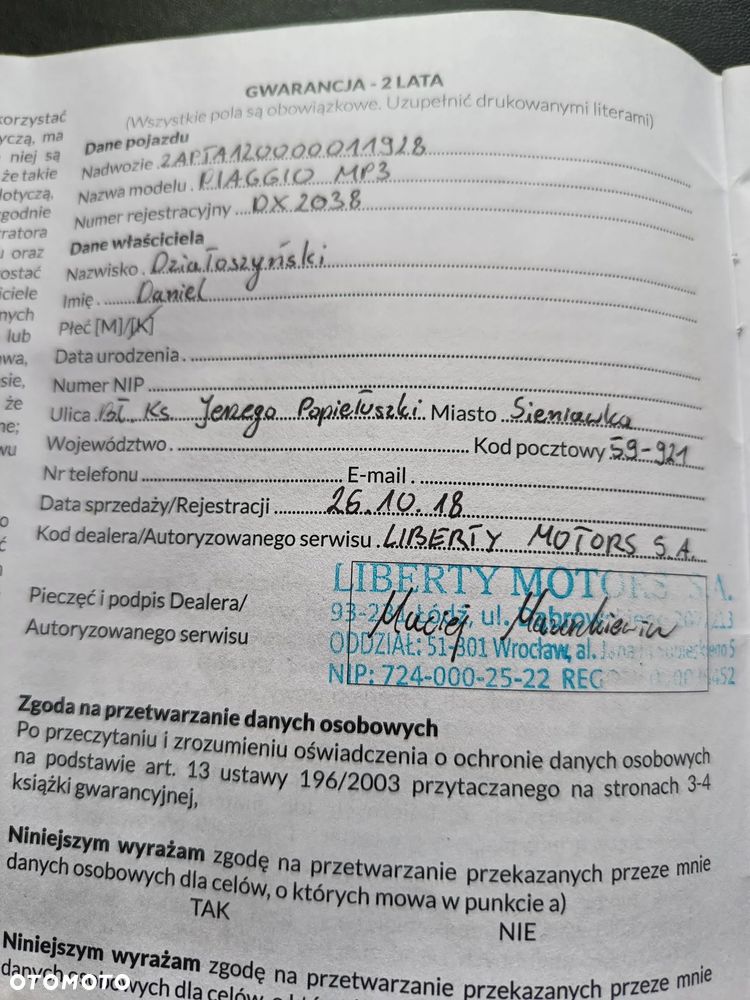 GWARANCJA - 2 LATA
(Wszystkie pola są obowiązkowe. Uzupełnić drukowanymi literami)
Dane pojazdu
Nadwozie ZAPTA120000011928
Nazwa modelu PIAGGIO MP3
Numer rejestracyjny DX 2038
Dane właściciela
Nazwisko Działoszyński
Imię Daniel
Płeć [M]/[K]
Data urodzenia
Numer NIP
Ulica Bł. Ks Jerzego Popiełuszki Miasto Sieniawka
Województwo Kod pocztowy 59-921
Nr telefonu E-mail
Data sprzedaży/Rejestracji 26.10.18
Kod dealera/Autoryzowanego serwisu LIBERTY MOTORS S.A.
Pieczęć i podpis Dealera/
Autoryzowanego serwisu
LIBERTY MOTORS S.A.
Łódź, ul.
ODDZIAŁ: 51-301 Wrocław, al.
NIP: 724-000-25-22 REG
Maciej
Zgoda na przetwarzanie danych osobowych
Po przeczytaniu i zrozumieniu oświadczenia o ochronie danych osobowych
na podstawie art. 13 ustawy 196/2003 przytaczanego na stronach 3-4
książki gwarancyjnej,
Niniejszym wyrażam zgodę na przetwarzanie przekazanych przeze mnie
danych osobowych dla celów, o których mowa w punkcie a)
TAK NIE
Niniejszym wyrażam zgodę na przetwarzanie przekazanych przeze mnie
danych osobowych dla celów, o których mowa w punkcie
korzystać
yczą, ma
niej są
że takie
dotyczą,
godnie
ratora
u oraz
ostać
iciele
nych
lub
owa,
sie,
że
ne;
wu
OTOMOTO